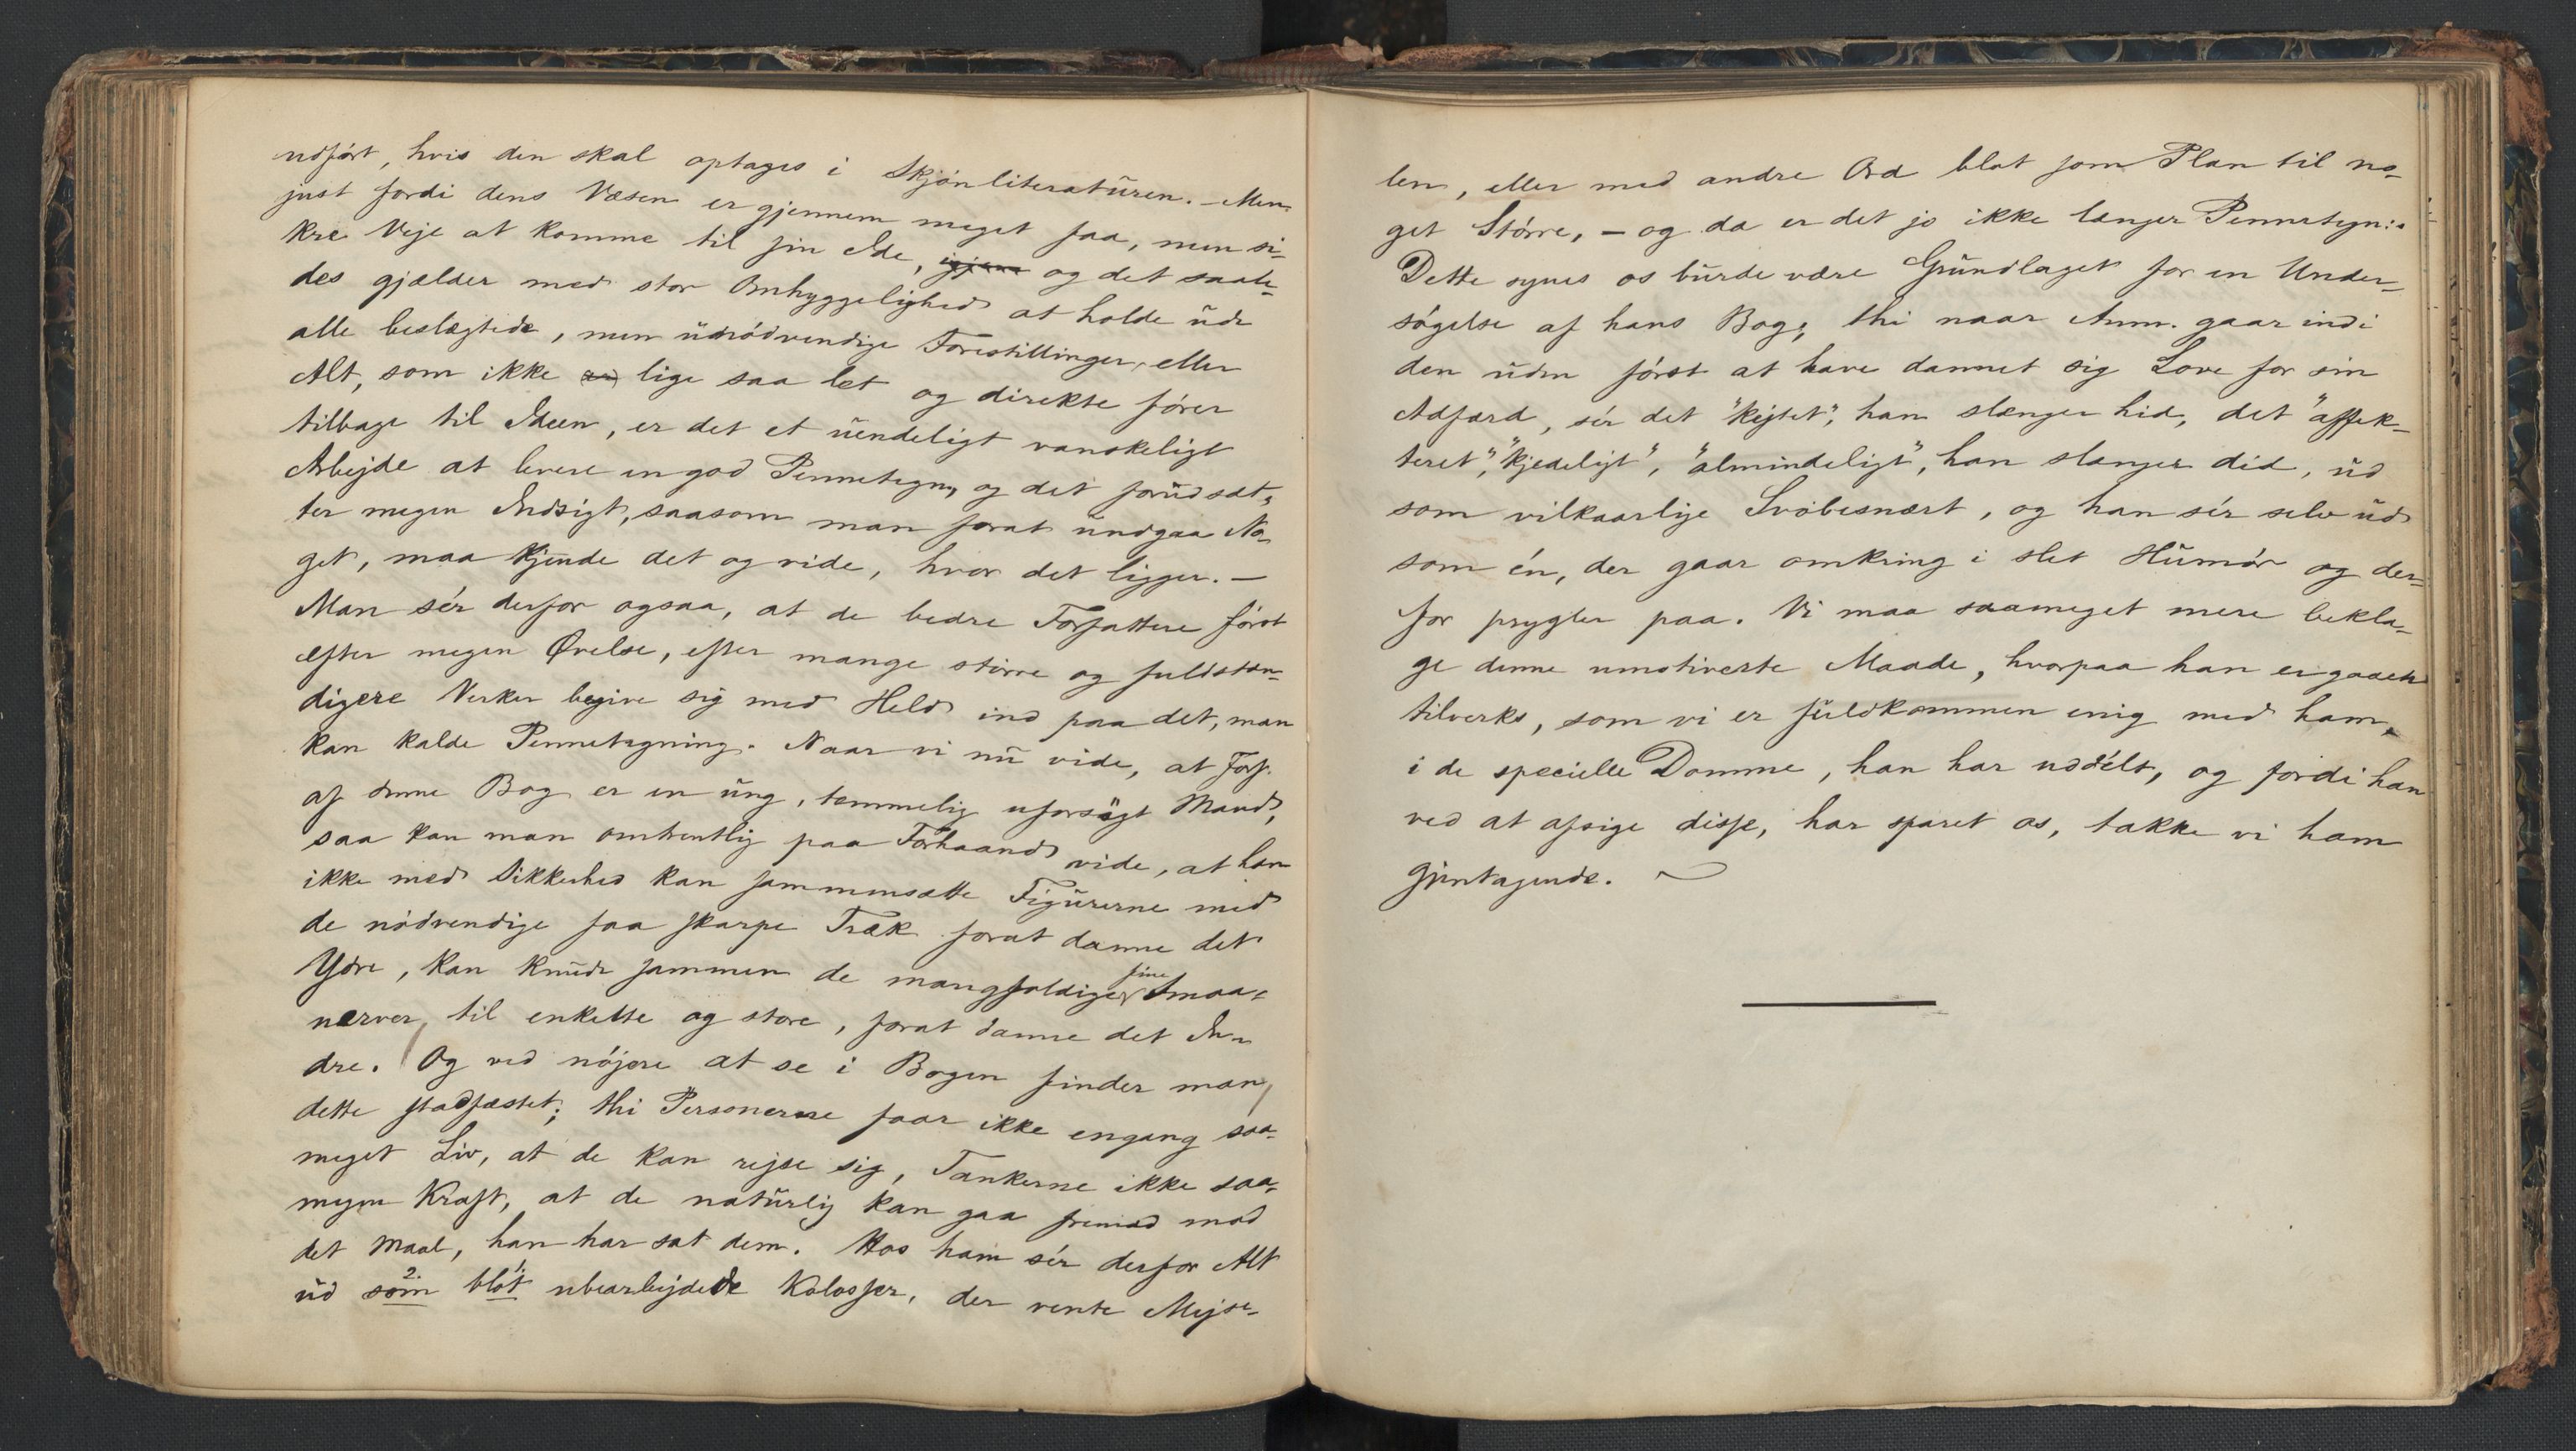 udført, hvis den skal optages i Skjønliteratŭren. – Men
just fordi dens Væsen er gjennem meget faa, men si-
kre Veje at komme til sin Ide, og det saale-
des gjælder med stor Omhyggelighed at holde ŭde
alle beslægtede, men ŭnødvendige Forestillinger, eller
Alt, som ikke lige saa let og direkte fører
tilbage til Ideen, er det et ŭendeligt vanskeligt
Arbejde at levere en god Pennetegn, og det forŭdsæt-
ter megen Indsigt, saasom man forat ŭndgaa No-
get, maa kjende det og vide, hvor det ligger. –
Man sér derfor ogsaa, at de bedre Forfattere først
efter megen Øvelse, efter mange større og fuldstæn-
digere Verker begive sig med Held ind paa det, man
kan kalde Pennetegning. Naar vi nŭ vide, at Forf.
af denne Bog er en ŭng, temmelig uforsøgt Mand,
saa kan man omtrentlig paa Forhaand vide, at han
ikke med Sikkerhed kan sammensætte Figŭrerne med
de nødvendige faa skarpe Træk forat danne det
Ydre, kan knŭde sammen de mangfoldige fine Smaa-
nerver, til enkelte og store, forat danne det In-
dre. Og ved nøjere at se i Bogen finder man
dette stadfæstet; thi Personerne faar ikke engang saa-
meget Liv, at de kan rejse sig, Tankerne ikke saa-
megen Kraft, at de natŭrlig kan gaa fremad mod
det Maal, han har sat dem. Hos ham sér derfor Alt
ŭd 2. som 1. blot ubearbejdede Kolosser, der vente Mejse-
len, eller med andre Ord blot som Plan til no-
get Større, – og da er det jo ikke længer Pennetegn:.
Dette synes os bŭrde være Grŭndlaget for en Under-
søgelse af hans Bog; thi naar Anm. gaar ind i
den ŭden først at have dannet sig Love for sin
Adfærd, sér det "kejtet", han slænger hid, det "affek-
teret", "kjedeligt", "almindeligt", han slænger did, ŭd
som vilkaarlige Svøbesnært, og han sér selv ŭd
som én, der gaar omkring i slet Hŭmør og der-
for prygler paa. Vi maa saameget mere bekla-
ge denne umotiverte Maade, hvorpaa han er gaaet
tilverks, som vi er fŭldkommen enig med ham,
i de specielle Domme, han har uddélt, og fordi han
ved at afsige disse, har sparet os, takke vi ham
gjentagende.